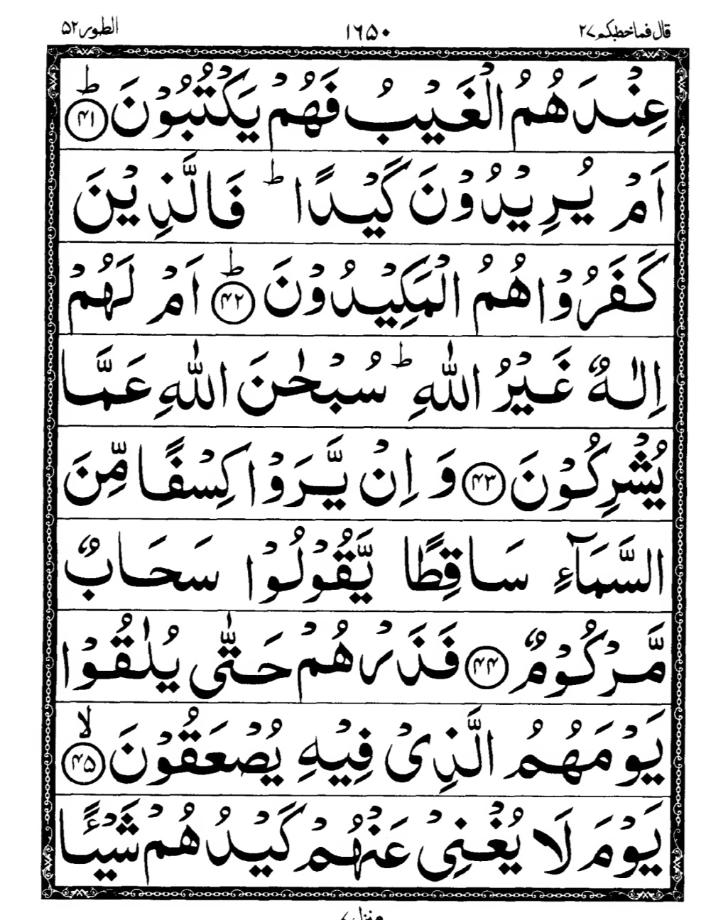 قال فماخطبكم ۲۷ ۱۶۵۰ الطور ۵۲
عِنْدَهُمُ الْغَيْبُ فَهُمْ يَكْتُبُوْنَ ؕ ﴿۴۱﴾
اَمْ يُرِيْدُوْنَ كَيْدًا ؕ فَالَّذِيْنَ
كَفَرُوْا هُمُ الْمَكِيْدُوْنَ ؕ ﴿۴۲﴾ اَمْ لَهُمْ
اِلٰهٌ غَيْرُ اللّٰهِ ؕ سُبْحٰنَ اللّٰهِ عَمَّا
يُشْرِكُوْنَ ﴿۴۳﴾ وَ اِنْ يَّرَوْا كِسْفًا مِّنَ
السَّمَآءِ سَاقِطًا يَّقُوْلُوْا سَحَابٌ
مَّرْكُوْمٌ ﴿۴۴﴾ فَذَرْهُمْ حَتّٰى يُلٰقُوْا
يَوْمَهُمُ الَّذِيْ فِيْهِ يُصْعَقُوْنَ ۙ ﴿۴۵﴾
يَوْمَ لَا يُغْنِيْ عَنْهُمْ كَيْدُهُمْ شَيْـًٔا
منزل ۷